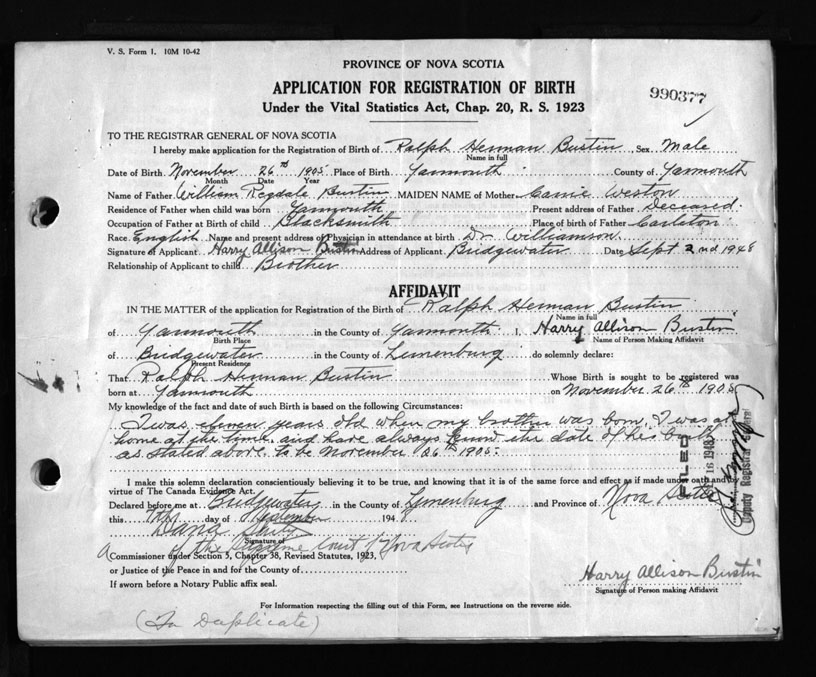 V. S. Form 1. 10M 10-42
PROVINCE OF NOVA SCOTIA
APPLICATION FOR REGISTRATION OF BIRTH
Under the Vital Statistics Act, Chap. 20, R. S. 1923
990377
TO THE REGISTRAR GENERAL OF NOVA SCOTIA
I hereby make application for the Registration of Birth of Ralph Herman Bustin Sex Male
Name in full
Date of Birth November 26th 1905 Place of Birth Yarmouth County of Yarmouth
Month Date Year
Name of Father William Ragdale Bustin MAIDEN NAME of Mother Carrie Weston
Residence of Father when child was born Yarmouth Present address of Father Deceased
Occupation of Father at Birth of child Blacksmith Place of birth of Father Carleton
Race English Name and present address of Physician in attendance at birth Dr. Williamson
Signature of Applicant Harry Allison Bustin Address of Applicant Bridgewater Date Sept 2nd 1948
Relationship of Applicant to child Brother
AFFIDAVIT
IN THE MATTER of the application for Registration of the Birth of Ralph Herman Bustin
Name in full
of Yarmouth in the County of Yarmouth I, Harry Allison Bustin
Birth Place Name of Person Making Affidavit
of Bridgewater in the County of Lunenburg do solemnly declare:
Present Residence
That Ralph Herman Bustin Whose Birth is sought to be registered was
born at Yarmouth on November 26th 1905
My knowledge of the fact and date of such Birth is based on the following Circumstances:
I was eleven years old when my brother was born, I was at
home at the time and have always the date of his birth
as stated above to be November 26th 1905.
I make this solemn declaration conscientiously believing it to be true, and knowing that it is of the same force and effect as if made under oath and by
virtue of The Canada Evidence Act.
Declared before me at Bridgewater in the County of Lunenburg and Province of Nova Scotia
this 7th day of September 194
Signature of
A of the Supreme Court of Nova Scotia
Commissioner under Section 5, Chapter 38, Revised Statutes, 1923,
or Justice of the Peace in and for the County of
If sworn before a Notary Public affix seal.
Harry Allison Bustin
Signature of Person making Affidavit
For Information respecting the filling out of this Form, see Instructions on the reverse side.
(In Duplicate)
FILED
16 1948
Deputy Registrar General